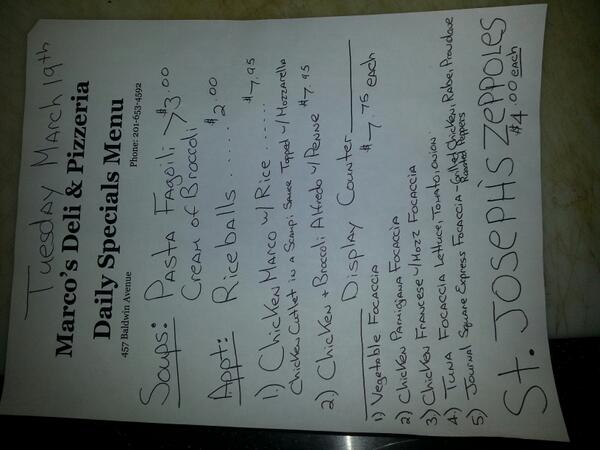 Tuesday March 19th
Marco's Deli & Pizzeria
Daily Specials Menu
457 Baldwin Avenue Phone: 201-653-4592
Soups: Pasta Fagoili > $3.00
Cream of Broccoli
Appt: Riceballs ..... $2.00
1) Chicken Marco w/ Rice ..... $7.95
Chicken Cutlet in a Scampi Sauce Topped w/ Mozzarella
2.) Chicken + Broccoli Alfredo w/ Penne $7.95
Display Counter
$7.75 each
1) Vegetable Focaccia
2) Chicken Parmigiana Focaccia
3) Chicken Francese w/ Mozz Focaccia
4) Tuna Focaccia Lettuce, Tomato, onion.
5) Journal Square Express Focaccia - Grilled Chicken, Rabe, Provolone
Roasted Peppers
St. Joseph's Zeppoles
$4.00 each